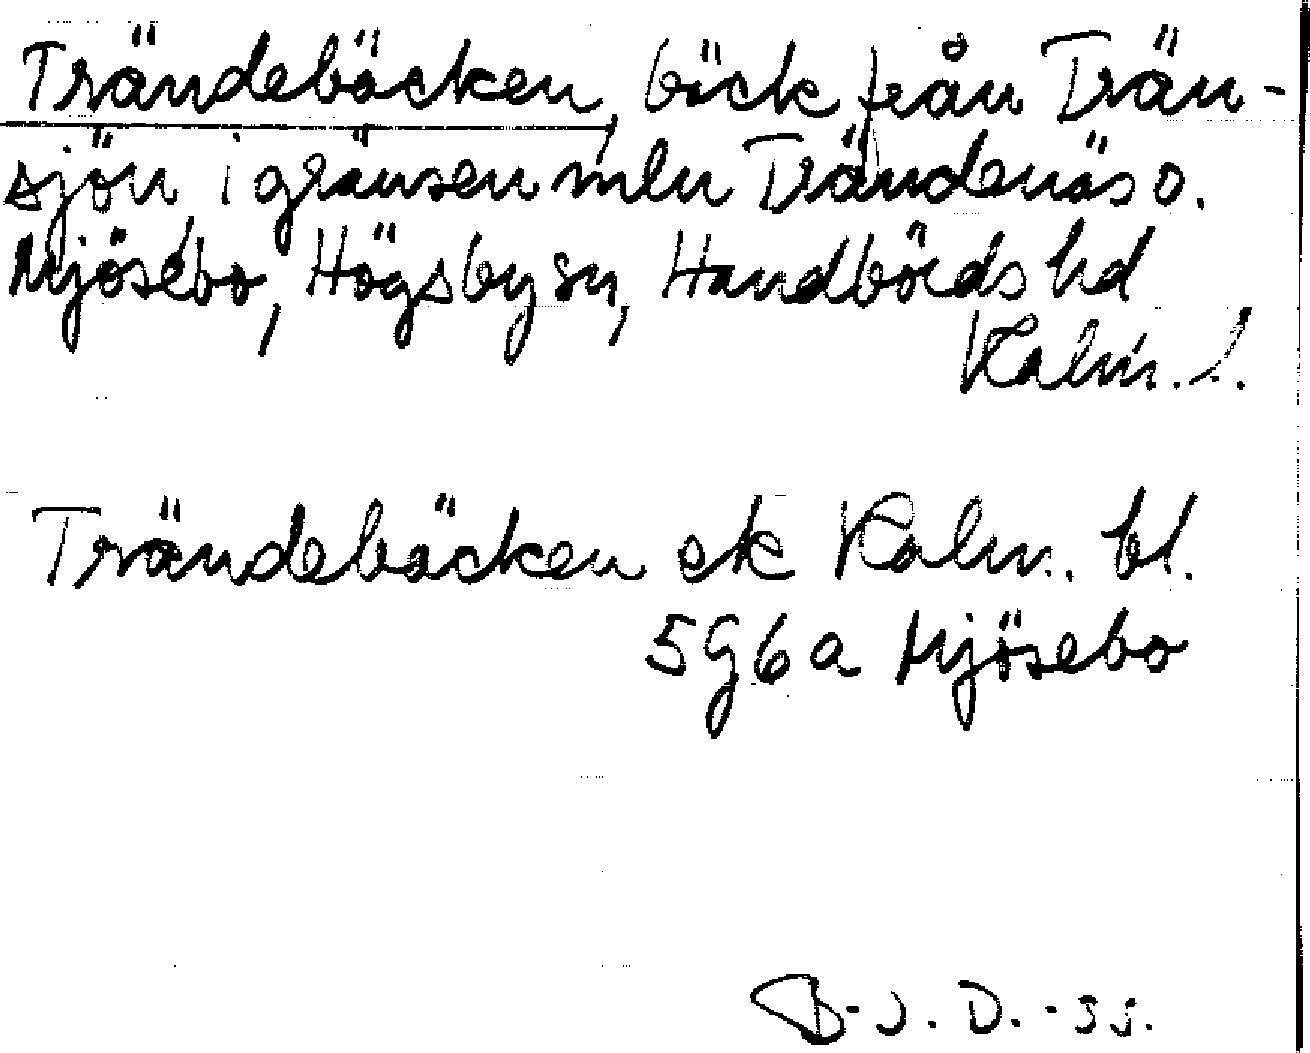 Trändebäcken, bäck från Trän-
sjön, i gränsen mln Trändenäs o.
Mjösebo, Högsby sn, Handbörds hd
Kalm. l.
Trändebäcken ek Kalm. bl.
5g6a Mjösebo
B-J. D. -ss.